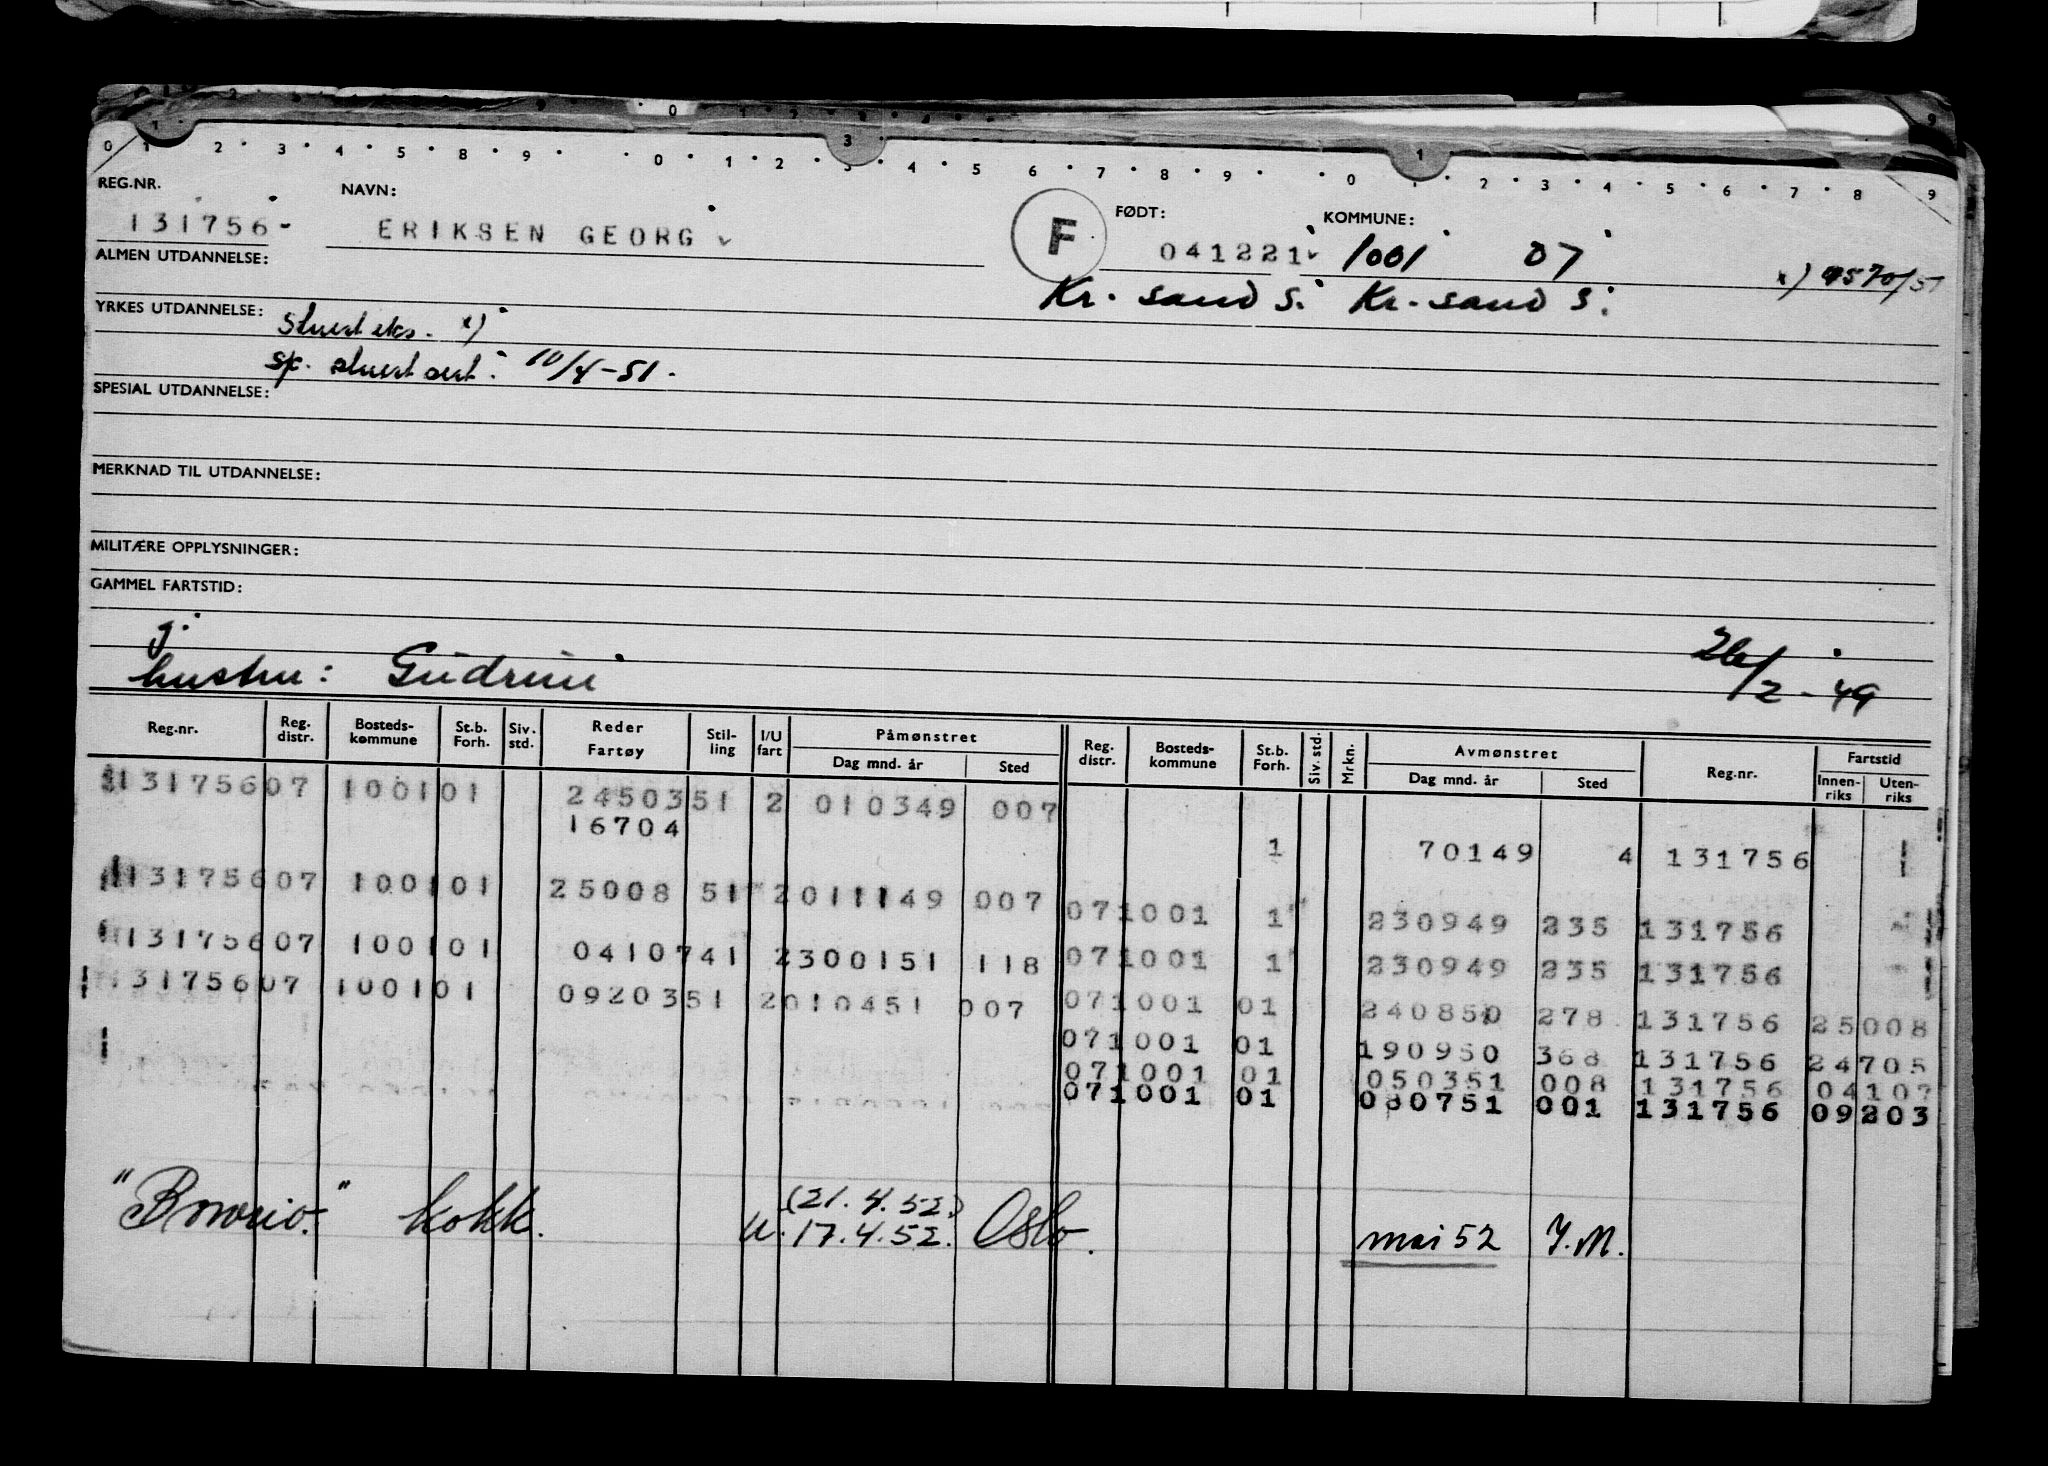 REG.NR. NAVN: FØDT: KOMMUNE:
131756- ERIKSEN GEORG F 041221 1001 07
Kr. sand S. Kr. sand S. x) 9570/51
ALMEN UTDANNELSE:
YRKES UTDANNELSE: Stuert eks. x)
sp. stuert cert. 10/4-51.
SPESIAL UTDANNELSE:
MERKNAD TIL UTDANNELSE:
MILITÆRE OPPLYSNINGER:
GAMMEL FARTSTID:
g.
hustru: Gudrun 26/2-49
Reg.nr. Reg. distr. Bosteds-kommune St.b. Forh. Siv. std. Reder Fartøy Stil-ling I/U fart Påmønstret Dag mnd. år Sted Reg. distr. Bosteds-kommune St.b. Forh. Siv. std. Mrkn. Avmønstret Dag mnd. år Sted Reg.nr. Fartstid Innen-riks Uten-riks
13175607 100101 2450351 2 010349 007
16704
1 70149 4 131756
13175607 100101 25008 51 2011149 007
071001 1 230949 235 131756
13175607 100101 0410741 2300151 118
071001 1 230949 235 131756
13175607 100101 0920351 2010451 007
071001 01 240850 278 131756 25008
071001 01 190950 368 131756 24705
071001 01 050351 008 131756 04107
071001 01 080751 001 131756 09203
(21.4.52)
kokk. u. 17.4.52. Oslo. mai 52 J.M.